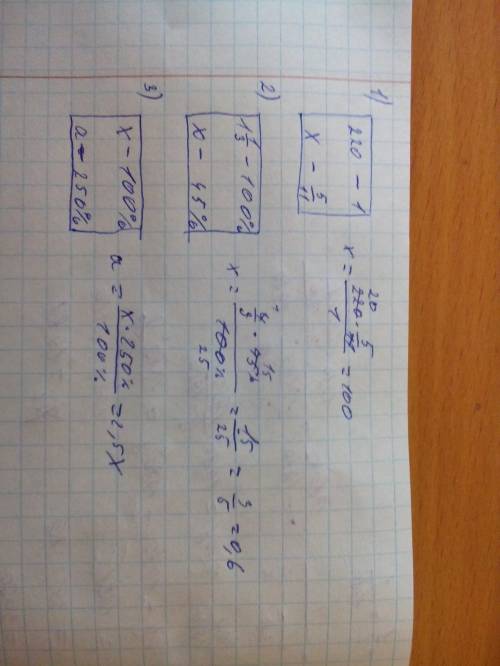 1)
220 - 1
x - 5/11
x = 220 · 5/11 / 1 = 100
20
2)
1 1/3 - 100%
x - 45%
x = 4/3 · 45% / 100% = 15/25 = 3/5 = 0,6
15
25
3)
x - 100%
a - 250%
a = x · 250% / 100% = 2,5x